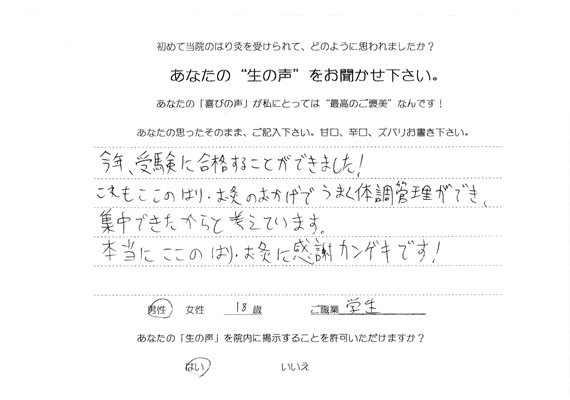 初めて当院のはり灸を受けられて、どのように思われましたか？
あなたの“生の声”をお聞かせ下さい。
あなたの「喜びの声」が私にとっては“最高のご褒美”なんです！
あなたの思ったそのまま、ご記入下さい。甘口、辛口、ズバリお書き下さい。
今年、受験に合格することができました！
これもここのはり・お灸のおかげでうまく体調管理ができ、
集中できたからと考えています。
本当にここのはり・お灸に感謝カンゲキです！
男性 女性 18歳 ご職業 学生
あなたの「生の声」を院内に掲示することを許可いただけますか？
はい いいえ